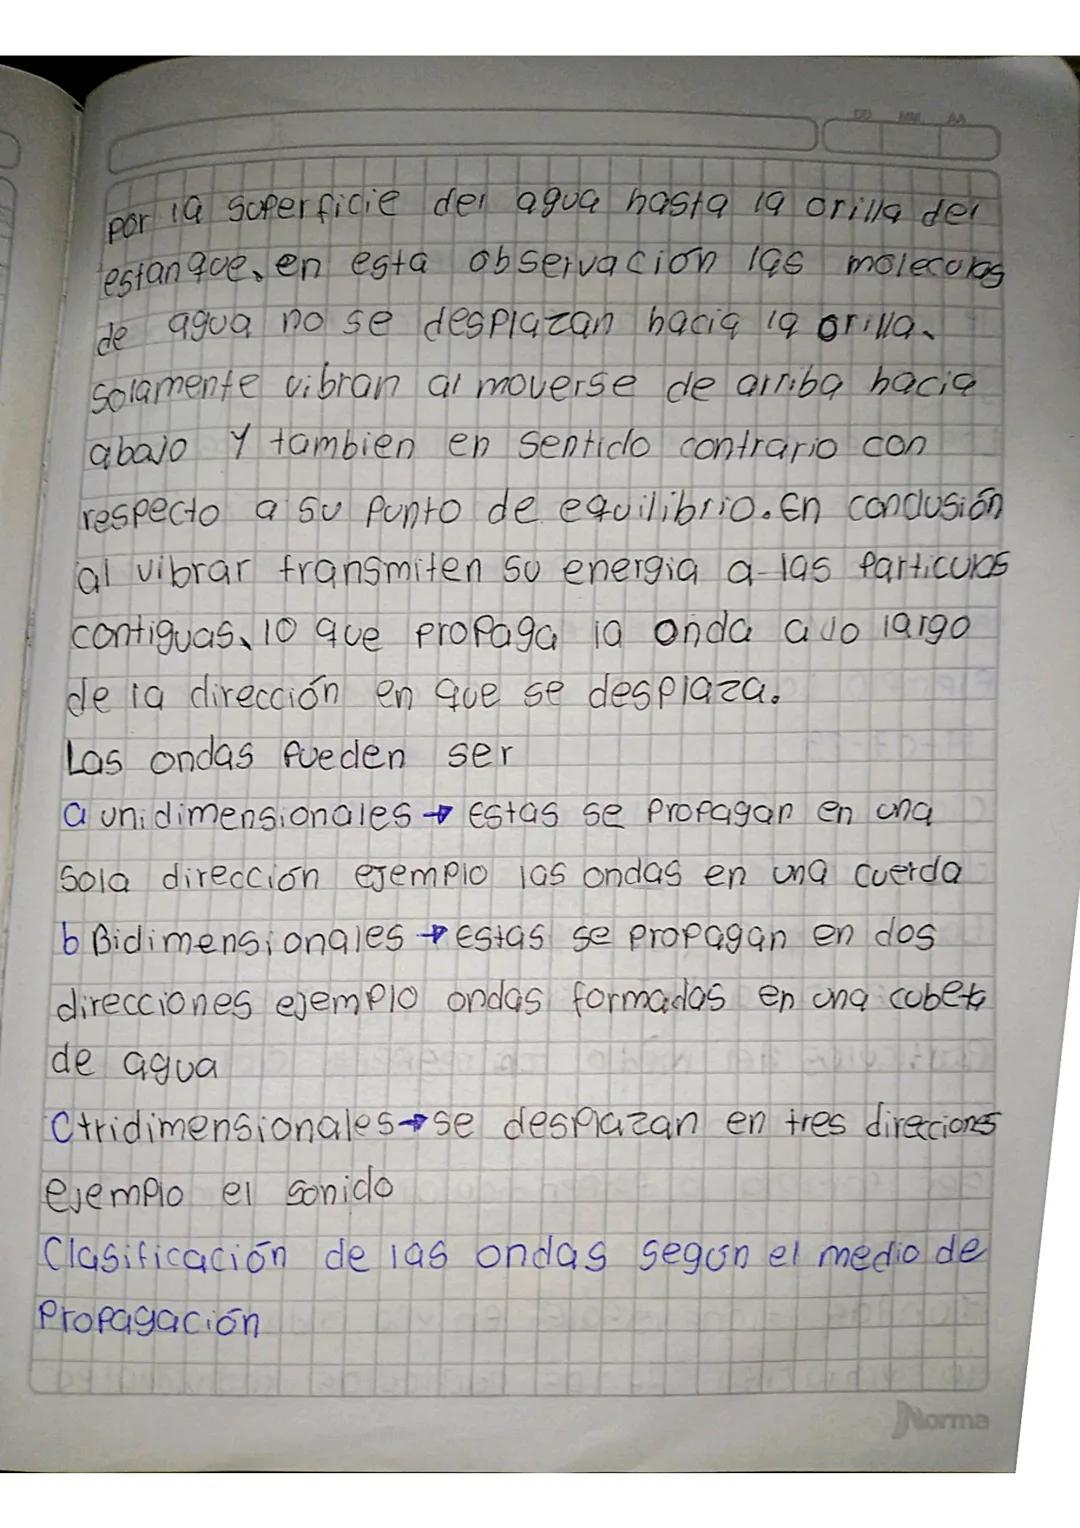 DD MM AA
por la superficie del agua hasta la orilla del
estanque, en esta observación las moleculas
de agua no se desplazan hacia la orilla,
solamente vibran al moverse de arriba hacia
abajo y tambien en sentido contrario con
respecto a su punto de equilibrio. En conclusión
al vibrar transmiten su energia a las particulas
contiguas, lo que propaga la onda a lo largo
de la dirección en que se desplaza.
Las ondas pueden ser
a unidimensionales → Estas se propagan en una
sola dirección ejemplo las ondas en una cuerda
b Bidimensionales → Estas se propagan en dos
direcciones ejemplo ondas formadas en una cubeta
de agua
C tridimensionales → se desplazan en tres direcciones
ejemplo el sonido
Clasificación de las ondas según el medio de
Propagación
Norma